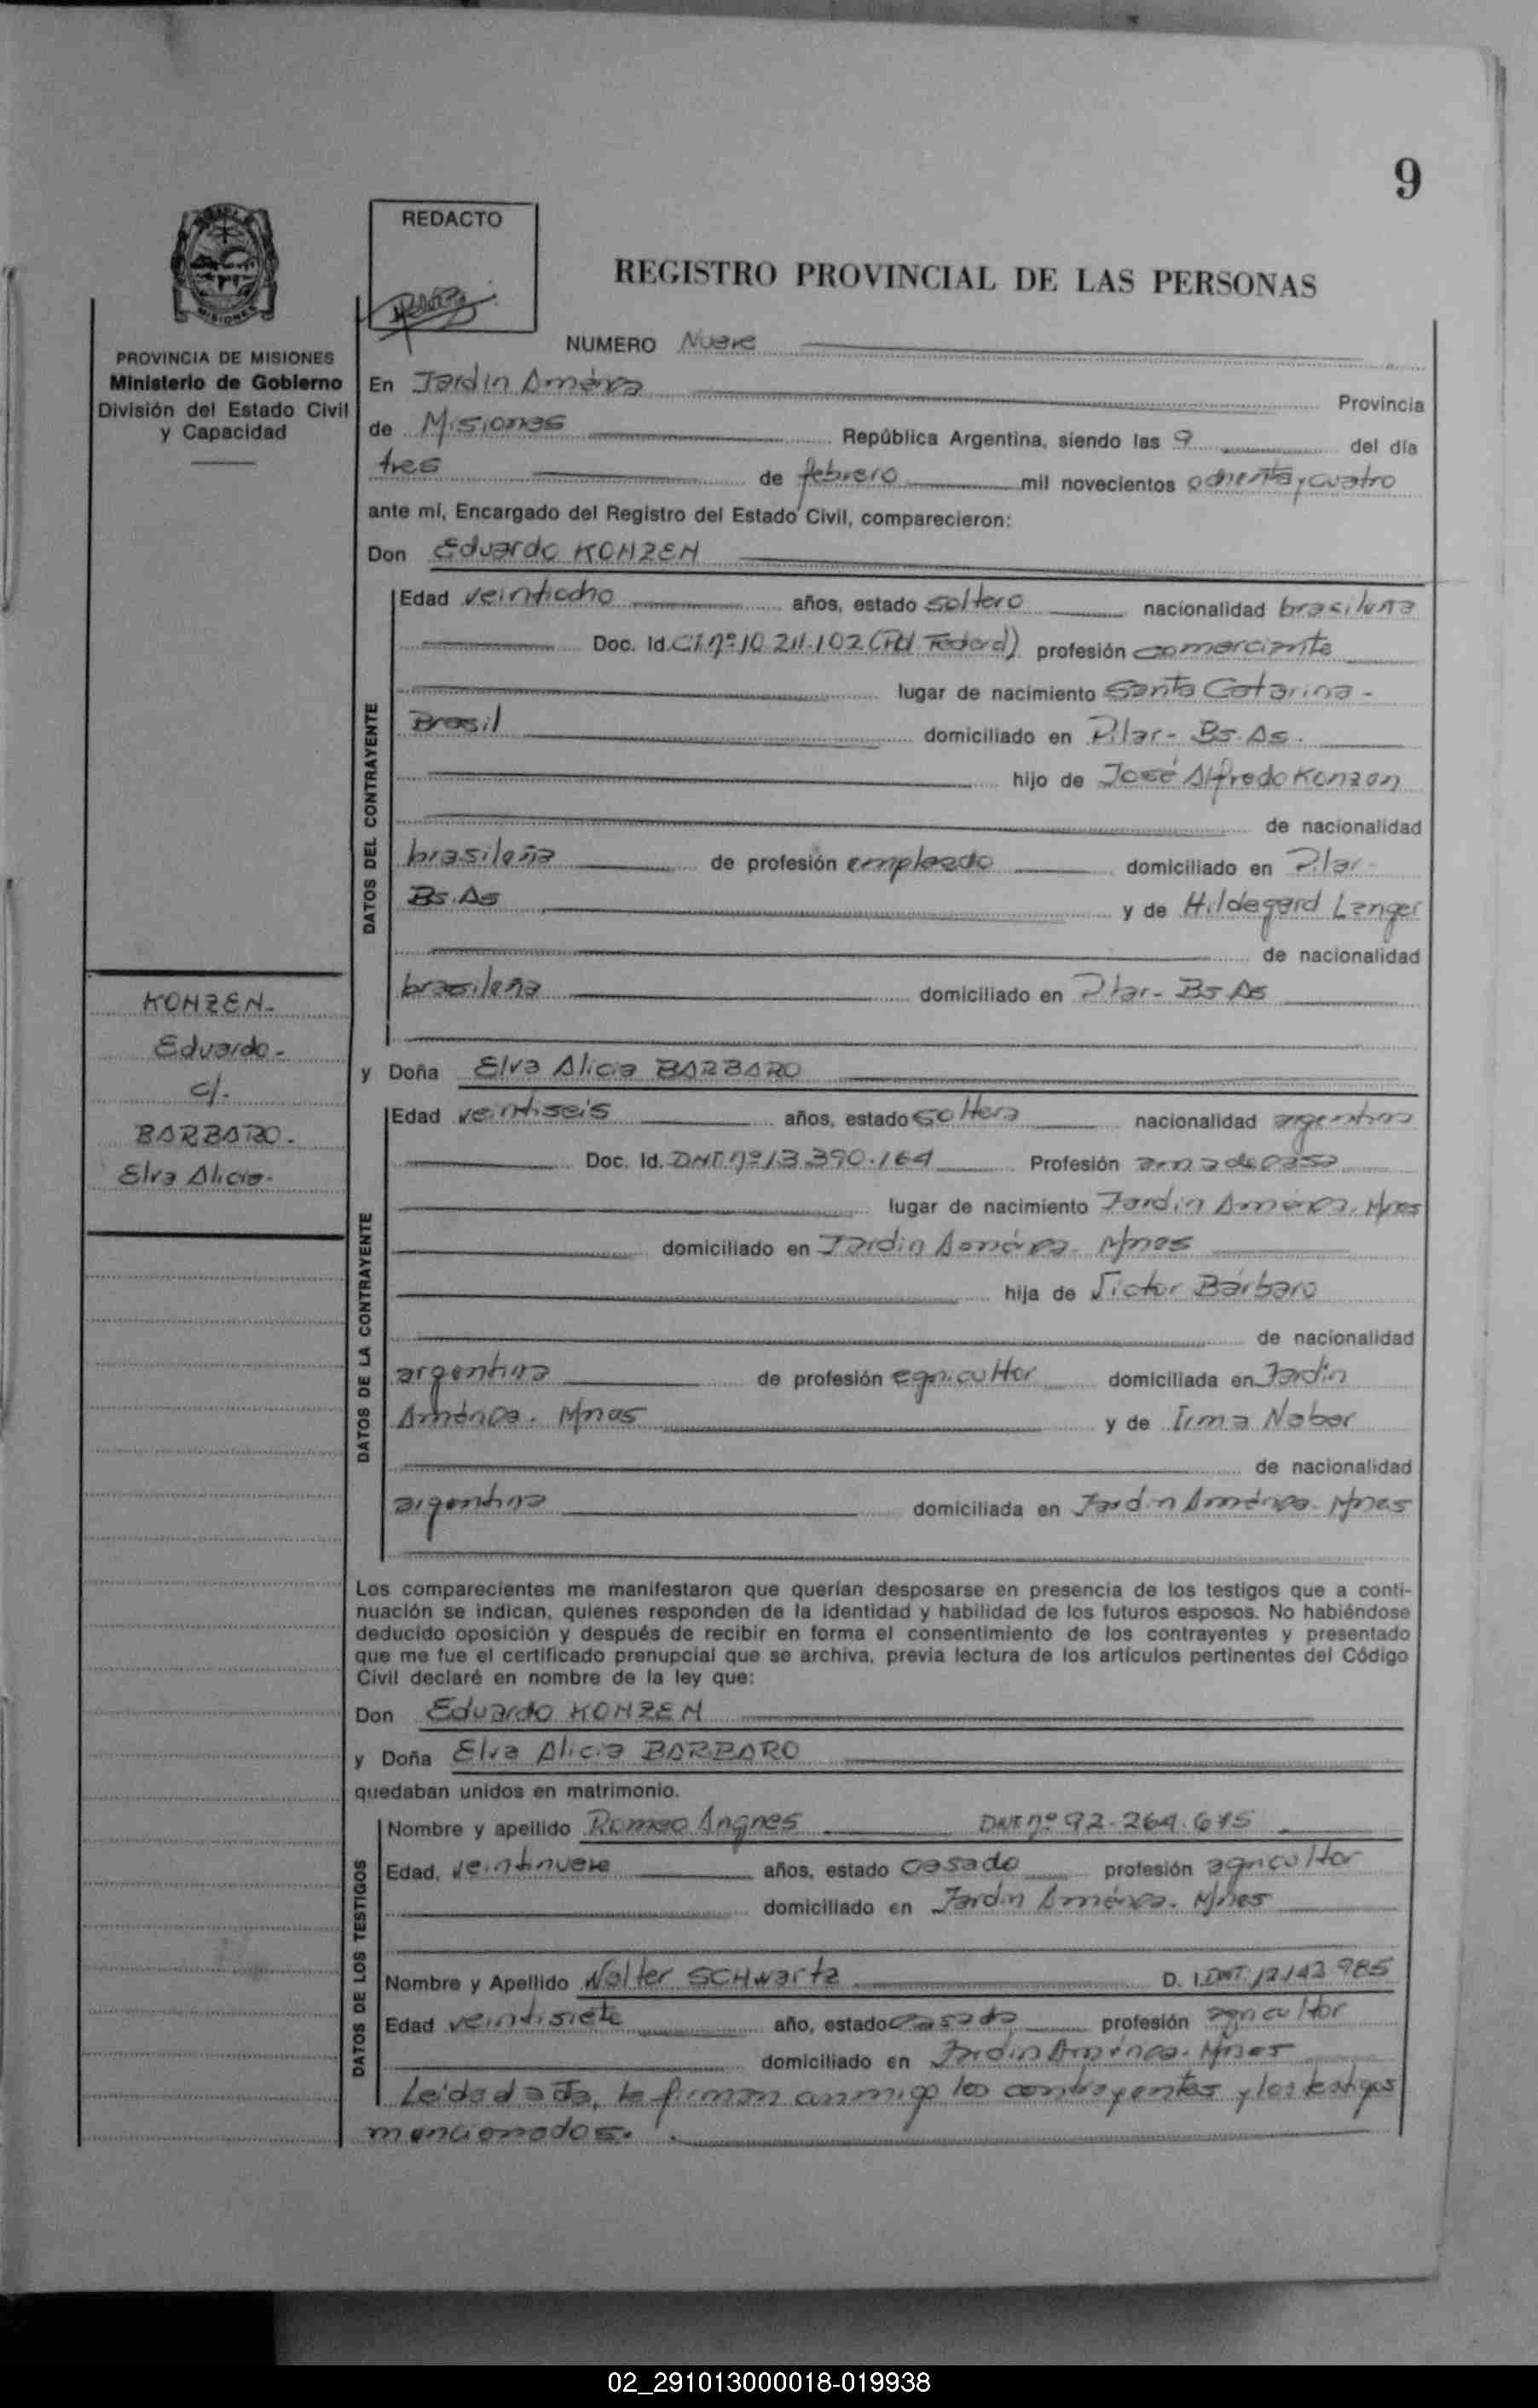 9
REDACTO
REGISTRO PROVINCIAL DE LAS PERSONAS
MISIONES
PROVINCIA DE MISIONES
Ministerio de Gobierno
División del Estado Civil
y Capacidad
KONZEN.
Eduardo-
c/.
BARBARO.
Elva Alicia-
NUMERO Nueve
En Jardín América Provincia
de Misiones República Argentina, siendo las 9 del día
tres de febrero mil novecientos ochenta y cuatro
ante mí, Encargado del Registro del Estado Civil, comparecieron:
Don Eduardo KONZEN
DATOS DEL CONTRAYENTE
Edad veintiocho años, estado soltero nacionalidad brasileña
Doc. Id. CI nº 10.211.102 (Pol Federal) profesión comerciante
lugar de nacimiento Santa Catarina-
Brasil domiciliado en Pilar- Bs.As.
hijo de José Alfredo Konzen
de nacionalidad
brasileña de profesión empleado domiciliado en Pilar-
Bs.As y de Hildegard Langer
de nacionalidad
brasileña domiciliado en Pilar- Bs As
y Doña Elva Alicia BARBARO
DATOS DE LA CONTRAYENTE
Edad veintiseis años, estado soltera nacionalidad argentina
Doc. Id. DNI nº 13.390.164 Profesión ama de casa
lugar de nacimiento Jardín América. Mnes
domiciliado en Jardín América- Mnes
hija de Victor Bárbaro
de nacionalidad
argentina de profesión agricultor domiciliada en Jardín
América. Mnes y de Irma Naber
de nacionalidad
argentina domiciliada en Jardín América- Mnes
Los comparecientes me manifestaron que querían desposarse en presencia de los testigos que a conti-
nuación se indican, quienes responden de la identidad y habilidad de los futuros esposos. No habiéndose
deducido oposición y después de recibir en forma el consentimiento de los contrayentes y presentado
que me fue el certificado prenupcial que se archiva, previa lectura de los artículos pertinentes del Código
Civil declaré en nombre de la ley que:
Don Eduardo KONZEN
y Doña Elva Alicia BARBARO
quedaban unidos en matrimonio.
DATOS DE LOS TESTIGOS
Nombre y apellido Romeo Angnes DNI nº 92.264.615
Edad, veintinueve años, estado casado profesión agricultor
domiciliado en Jardín América. Mnes
Nombre y Apellido Walter SCHwartz D. I. DNI. 12.142.985
Edad veintisiete año, estado casado profesión agricultor
domiciliado en Jardín América- Mnes
Leída da ésta, la firman conmigo los contrayentes y los testigos
mencionados.
02_291013000018-019938